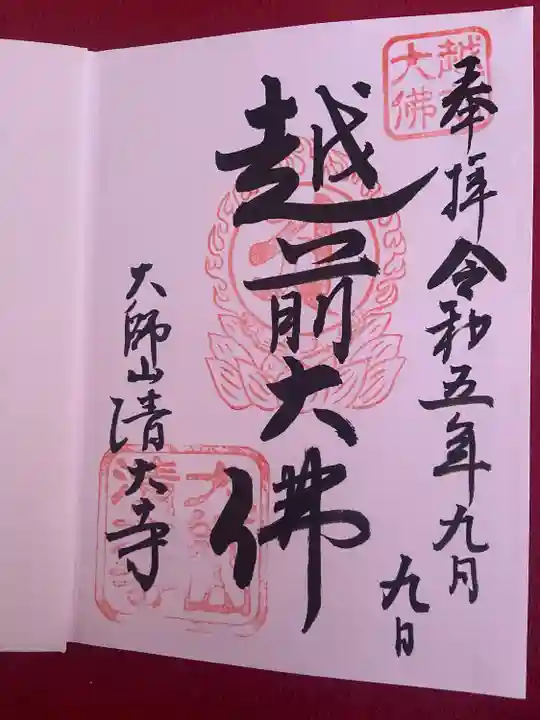 奉拝 令和五年九月
九日
越前大佛
越前大佛
大師山清大寺